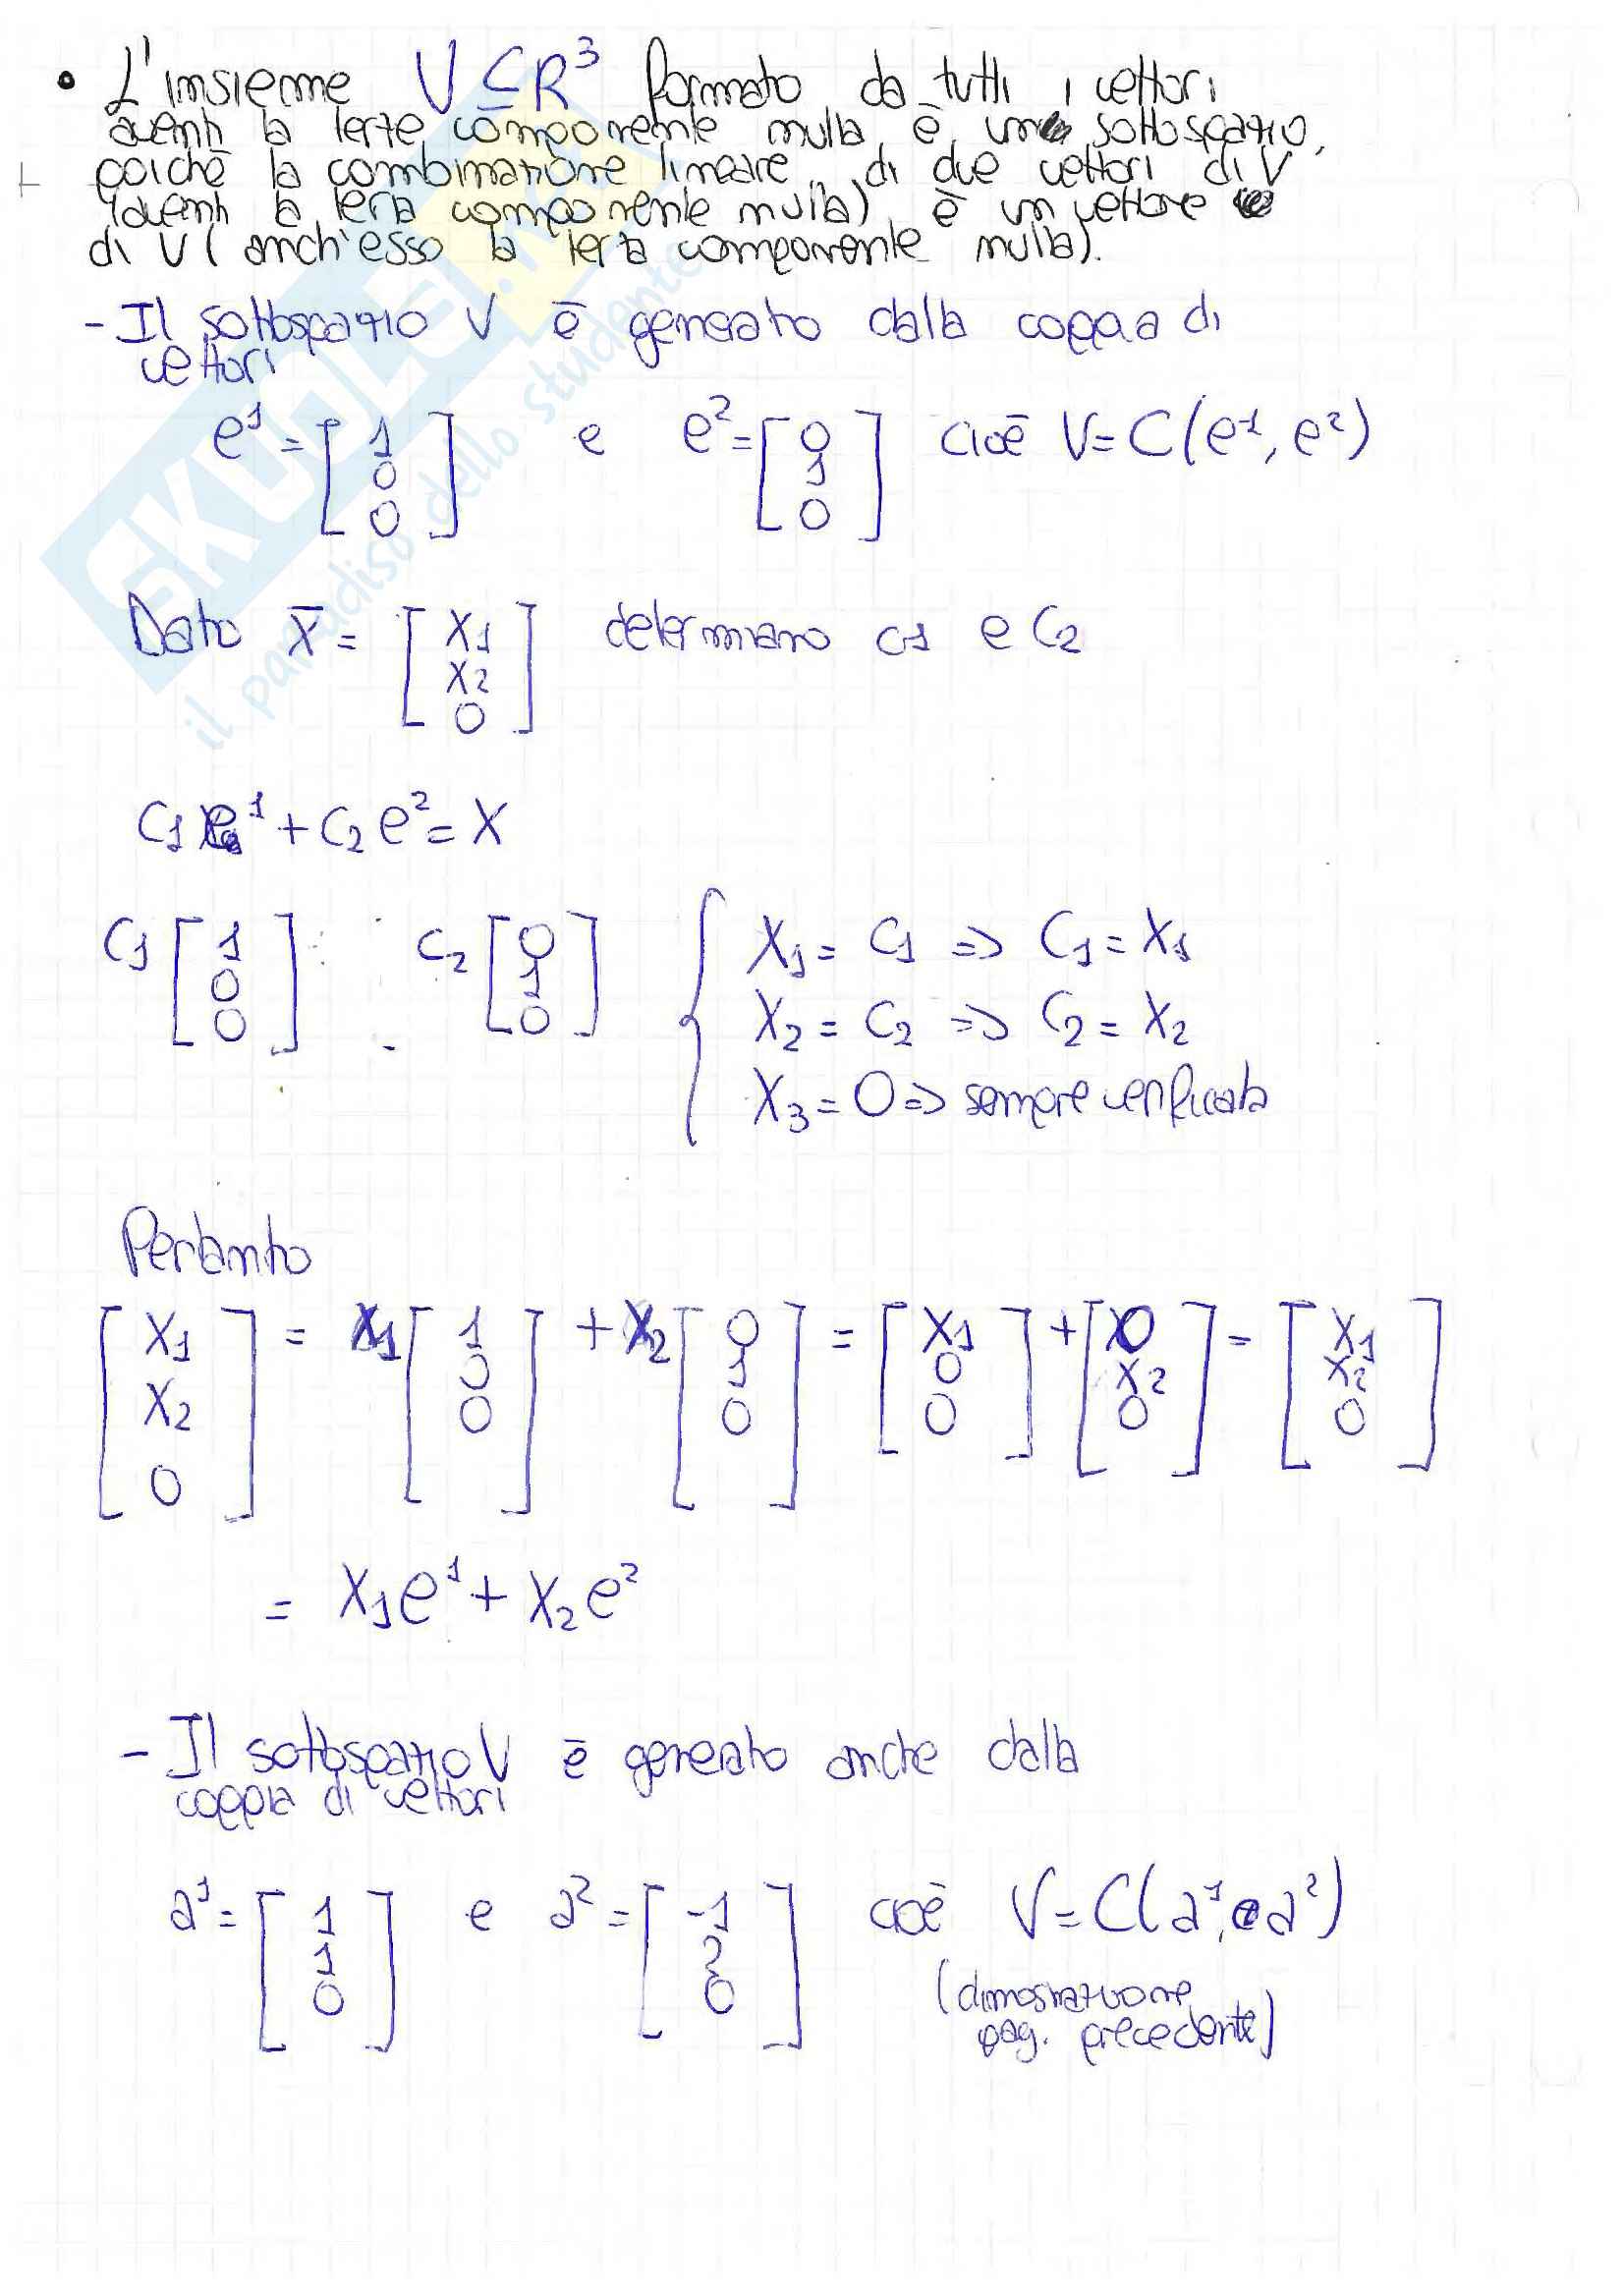 • L'insieme V ⊆ R³ formato da tutti i vettori
aventi la terza componente nulla è un sottospazio,
poichè la combinazione lineare di due vettori di V
(aventi la terza componente nulla) è un vettore
di V (anch'esso la terza componente nulla).
- Il sottospazio V è generato dalla coppia di
vettori
e¹ = [1 0 0] e e² = [0 1 0] cioè V = C(e¹, e²)
Dato x̄ = [x₁ x₂ 0] determiano c₁ e c₂
c₁ e¹ + c₂ e² = x
c₁ [1 0 0] c₂ [0 1 0] { x₁ = c₁ => c₁ = x₁
x₂ = c₂ => c₂ = x₂
x₃ = 0 => sempre verificata
Pertanto
[x₁ x₂ 0] = x₁ [1 0 0] + x₂ [0 1 0] = [x₁ 0 0] + [0 x₂ 0] = [x₁ x₂ 0]
= x₁e¹ + x₂e²
- Il sottospazio V è generato anche dalla
coppia di vettori
a¹ = [1 1 0] e a² = [-1 2 0] cioè V = C(a¹, a²)
(dimostrazione
pag. precedente)
SKUOLA.NET
il paradiso dello studente